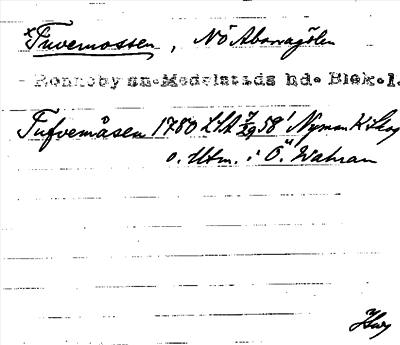 ×Tuvemossen, NÖ Abborragölen
Ronneby sn. Medelstads hd. Blek.l.
Tufvemåsen 1780 LSA 7/29 58' Nyman K Skog
o. Utm. i Ö. Wahran